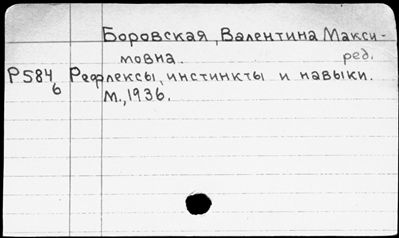 Боровская, Валентина Макси-
мовна. ред.
Р584 Рефлексы, инстинкты и навыки.
б М., 1936.